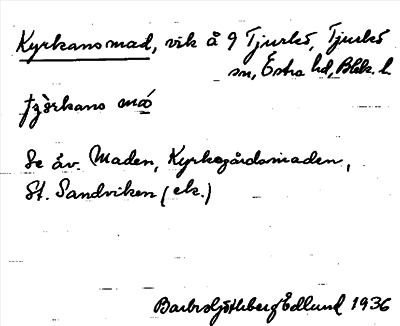 Kyrkans mad, vik å 9 Tjurkö, Tjurkö
sn, Östra hd, Blek. l.
ɟyrkans mã
Se äv. Maden, Kyrkogårdsmaden,
St. Sandviken (ek.)
Edlund 1936